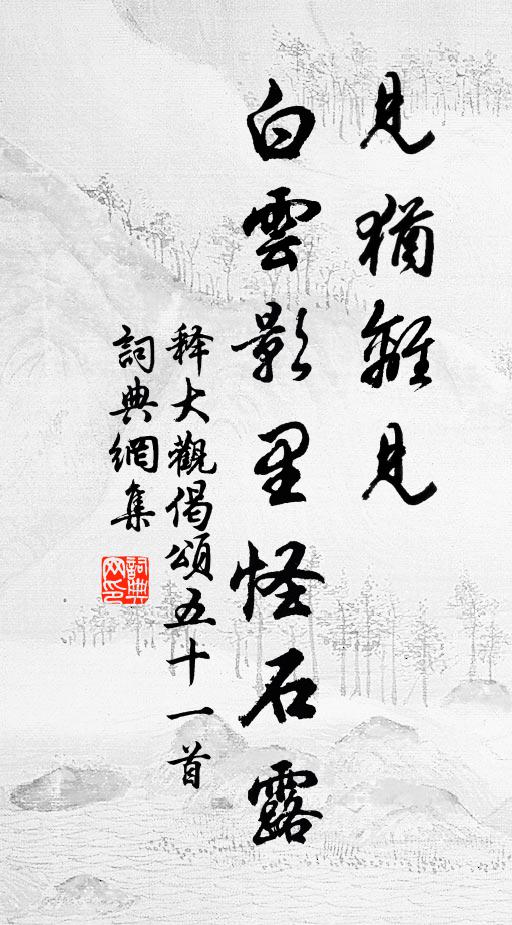 見猶離見
白雲影里怪石露
釋大觀偈頌五十一首
詞典網集
詞典
网印